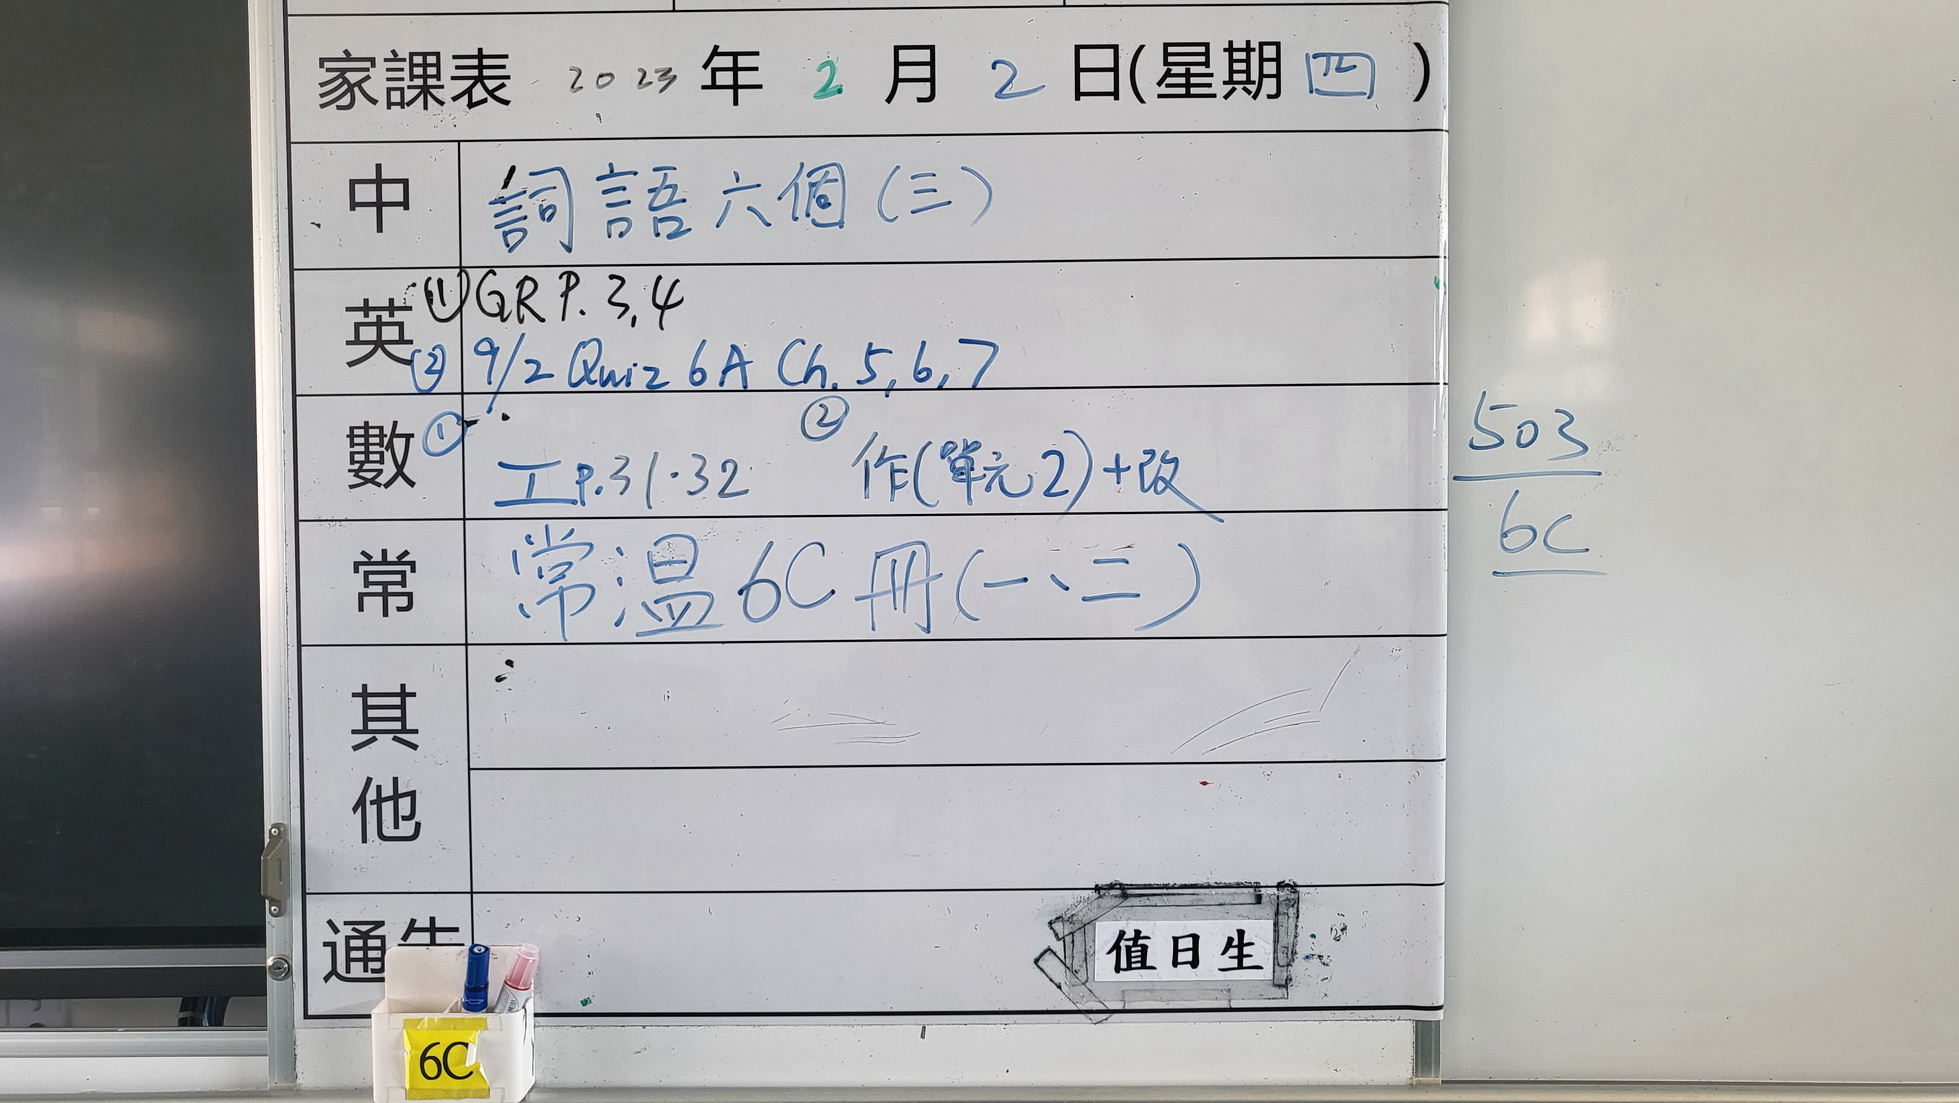 家課表 2023 年 2 月 2 日(星期 四 )
中 詞語六個(三)
英 ① GR P. 3, 4
② 9/2 Quiz 6A Ch. 5, 6, 7
數 ① 工P.31.32 ② 作(單元2)+改
常 常温6C冊(一、二)
其他
通告
值日生
6C
503
6C